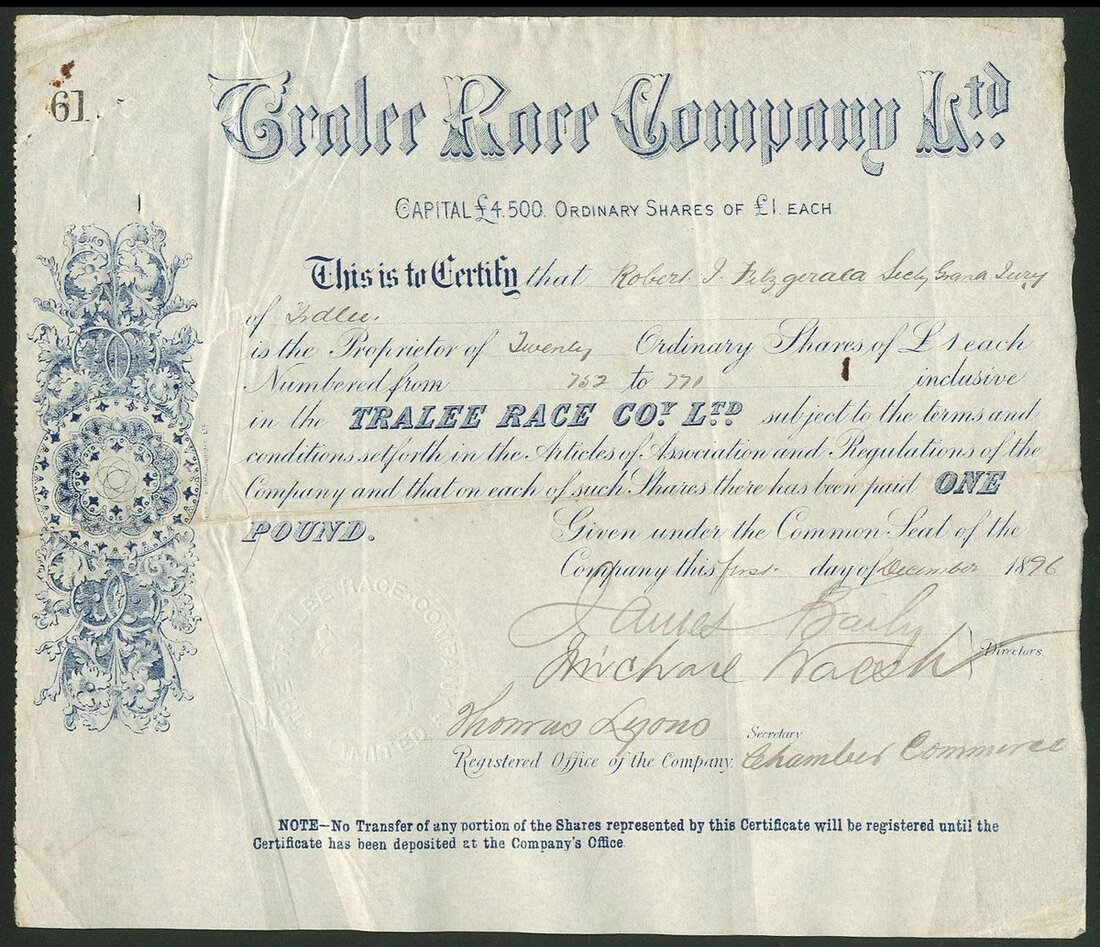 61
Tralee Race Company Ltd.
CAPITAL £4.500. ORDINARY SHARES OF £1. EACH
This is to Certify that Robert J. Fitzgerald Secty Grand Jury
of Tralee.
is the Proprietor of Twenty Ordinary Shares of £1 each
Numbered from 752 to 771 inclusive
in the TRALEE RACE COY. LTD. subject to the terms and
conditions set forth in the Articles of Association and Regulations of the
Company and that on each of such Shares there has been paid ONE
POUND. Given under the Common Seal of the
Company this first day of December 1896
James Baily
Michael Walsh Directors
Thomas Lyons Secretary
Registered Office of the Company. Chamber Commerce
THE TRALEE RACE COMPANY LIMITED
NOTE—No Transfer of any portion of the Shares represented by this Certificate will be registered until the
Certificate has been deposited at the Company's Office.